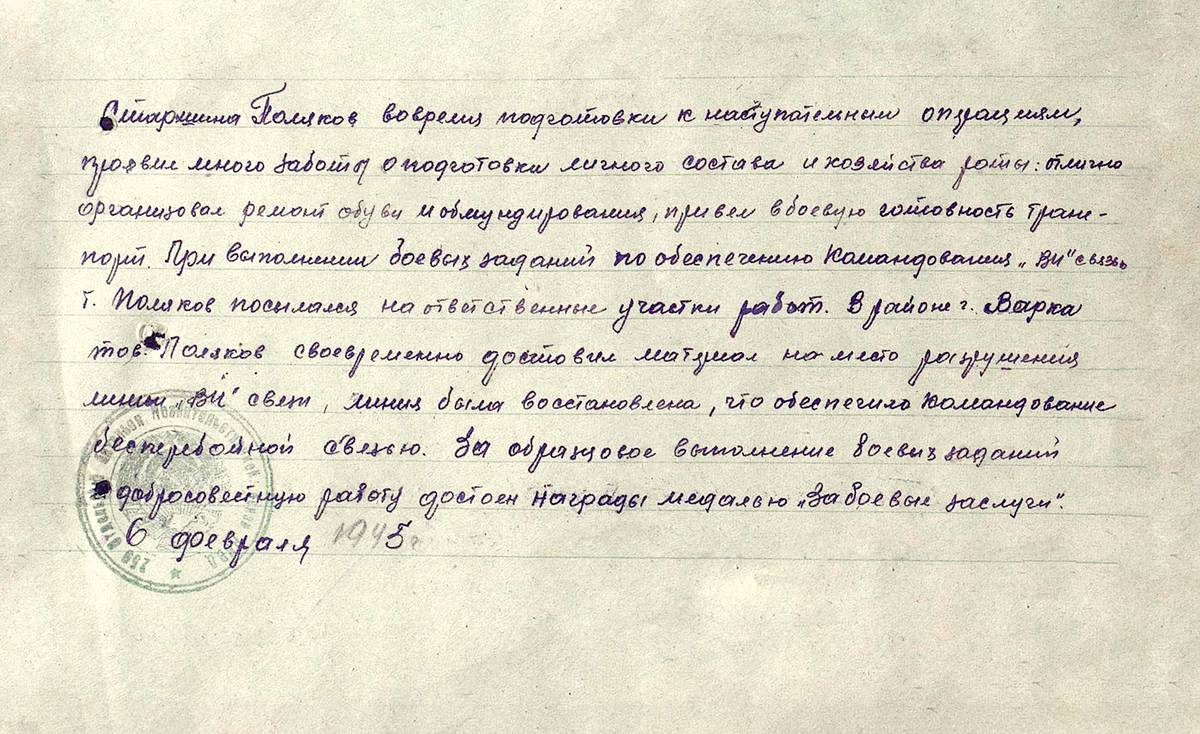 Старшина Поляков вовремя подготовки к наступательным опрациям,
проявил много заботы о подготовки личного состава и хозяйства роты: отлично
организовал ремонт обуви и обмундирования, привел в боевую готовность транс-
порт. При выполнении боевых заданий по обеспечению Командования „ВЧ" связью
т. Поляков посылался на ответственные участки работ. В районе г. Варка
тов. Поляков своевременно доставил материал на место разрушения
линии „ВЧ" связи, линия была восстановлена, что обеспечило Командование
бесперебойной связью. За образцовое выполнение боевых заданий
и добросовестную работу достоен награды медалью „За боевые заслуги".
6 февраля 1945 г.